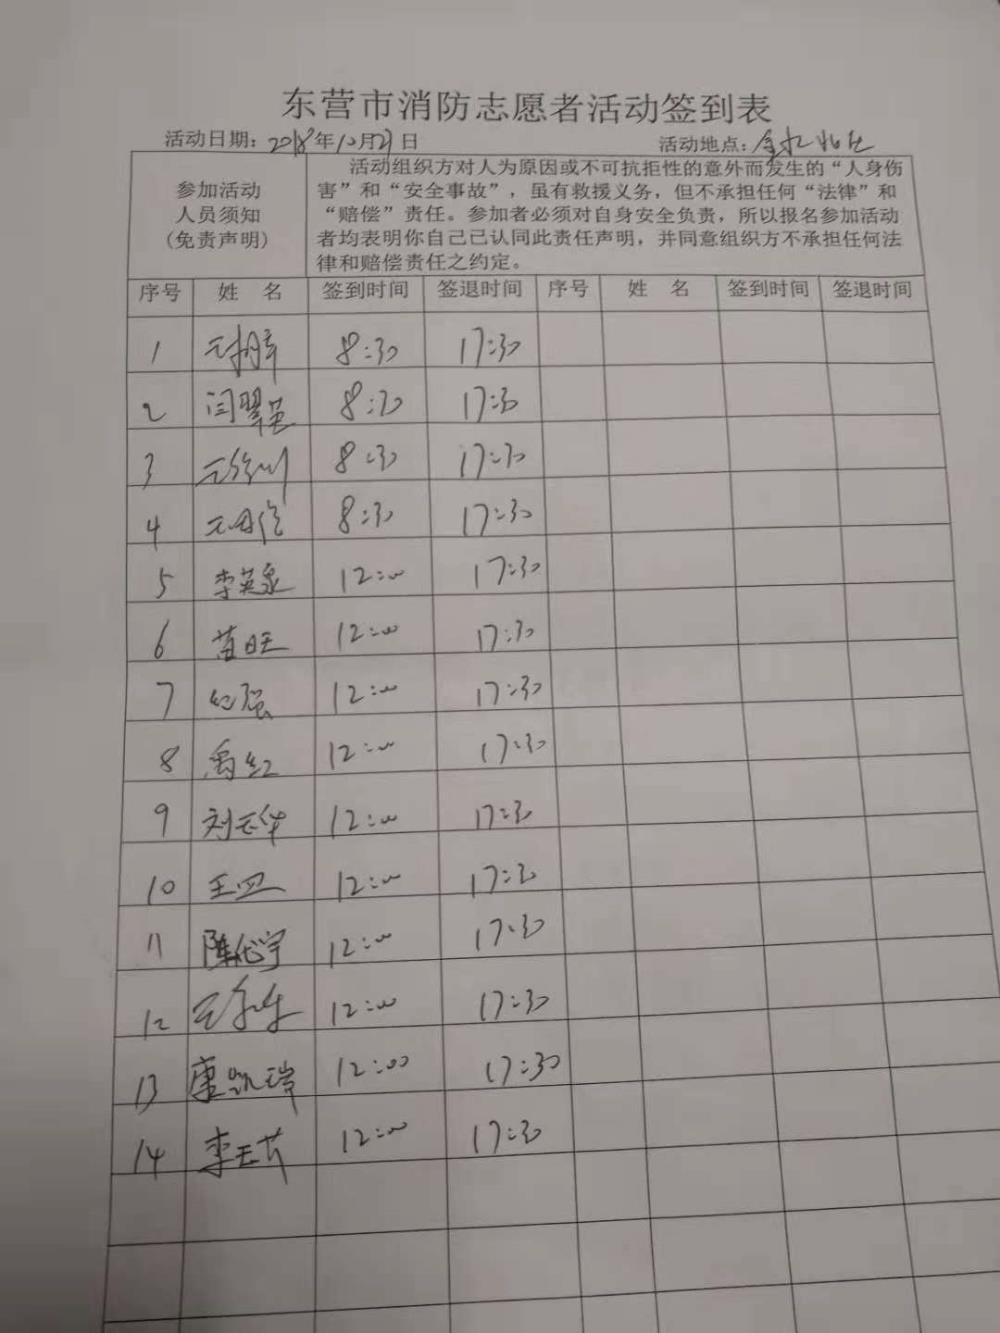 东营市消防志愿者活动签到表
活动日期：2018年10月21日 活动地点：
参加活动
人员须知
(免责声明)
活动组织方对人为原因或不可抗拒性的意外而发生的“人身伤
害”和“安全事故”，虽有救援义务，但不承担任何“法律”和
“赔偿”责任。参加者必须对自身安全负责，所以报名参加活动
者均表明你自己已认同此责任声明，并同意组织方不承担任何法
律和赔偿责任之约定。
序号 姓 名 签到时间 签退时间 序号 姓 名 签到时间 签退时间
1 8:30 17:30
2 闫翠英 8:30 17:30
3 8:30 17:30
4 8:30 17:30
5 李英泉 12:00 17:30
6 苗旺 12:00 17:30
7 纪强 12:00 17:30
8 禹红 12:00 17:30
9 刘云华 12:00 17:30
10 12:00 17:30
11 陈代宇 12:00 17:30
12 12:00 17:30
13 康凯瑞 12:00 17:30
14 李玉芹 12:00 17:30